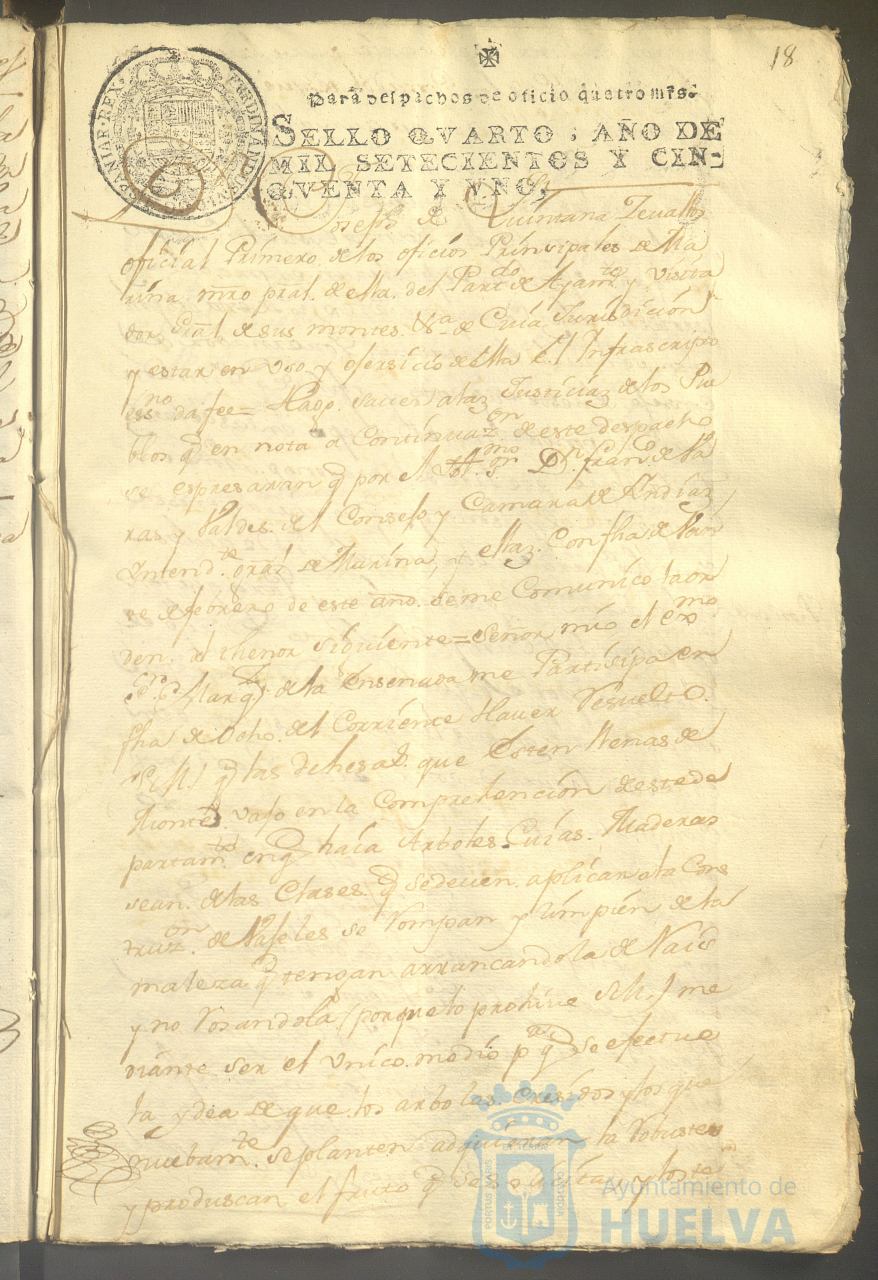 18
Para despachos de oficio quatro mrs.
SELLO QVARTO, AÑO DE
MIL SETECIENTOS Y CIN-
QVENTA Y VNO,
HISPANIAR·REX·FERDINANDUS·VI
Dn Joseph de Quintana Zevallos
oficial Primero de los oficios Principales de Ma
rina mro pral. de ella del Partdo de Ayamte y visita
dor Gral de sus montes de Cuia Jurisdicion
y estar en vso y esersicio de ella el Infrascripto
essno da fee= Hago saver a las Justicias de los Pue
blos q en nota a Continuazon de este despacho
se espresaran q por el Illmo Sor Dn Franco de Va
ras y Valdes del Consejo y Camara de Yndias
Intendte Gral de Marina, y ellas Con fha de Vein
te de febrero de este año se me Comunico la or
den del thenor siguiente= Señor mio el Exmo
Sor Marqs de la Ensenada me Partisipa en
fha de Ocho del Corriente Haver Resuelto
S.M. q las dehesas que Esten llenas de
Monte vajo en la Comprehencion de este de
partamto en q haia Arboles Cuias Maderas
sean de las Clases q se deven aplicar a la Cons
truzon de Vajeles se Rompan y limpien de la
maleza q tengan arrancandola de Rais
y no Rosandola (porque lo prohive S.M.) me
diante ser el vnico medio pa q se efectue
la ydea de que los arboles Cresidos y los que
nuebamte se planten adquieran la Robustes
y produscan el fruto q se solicita y los
Ayuntamiento de
HUELVA